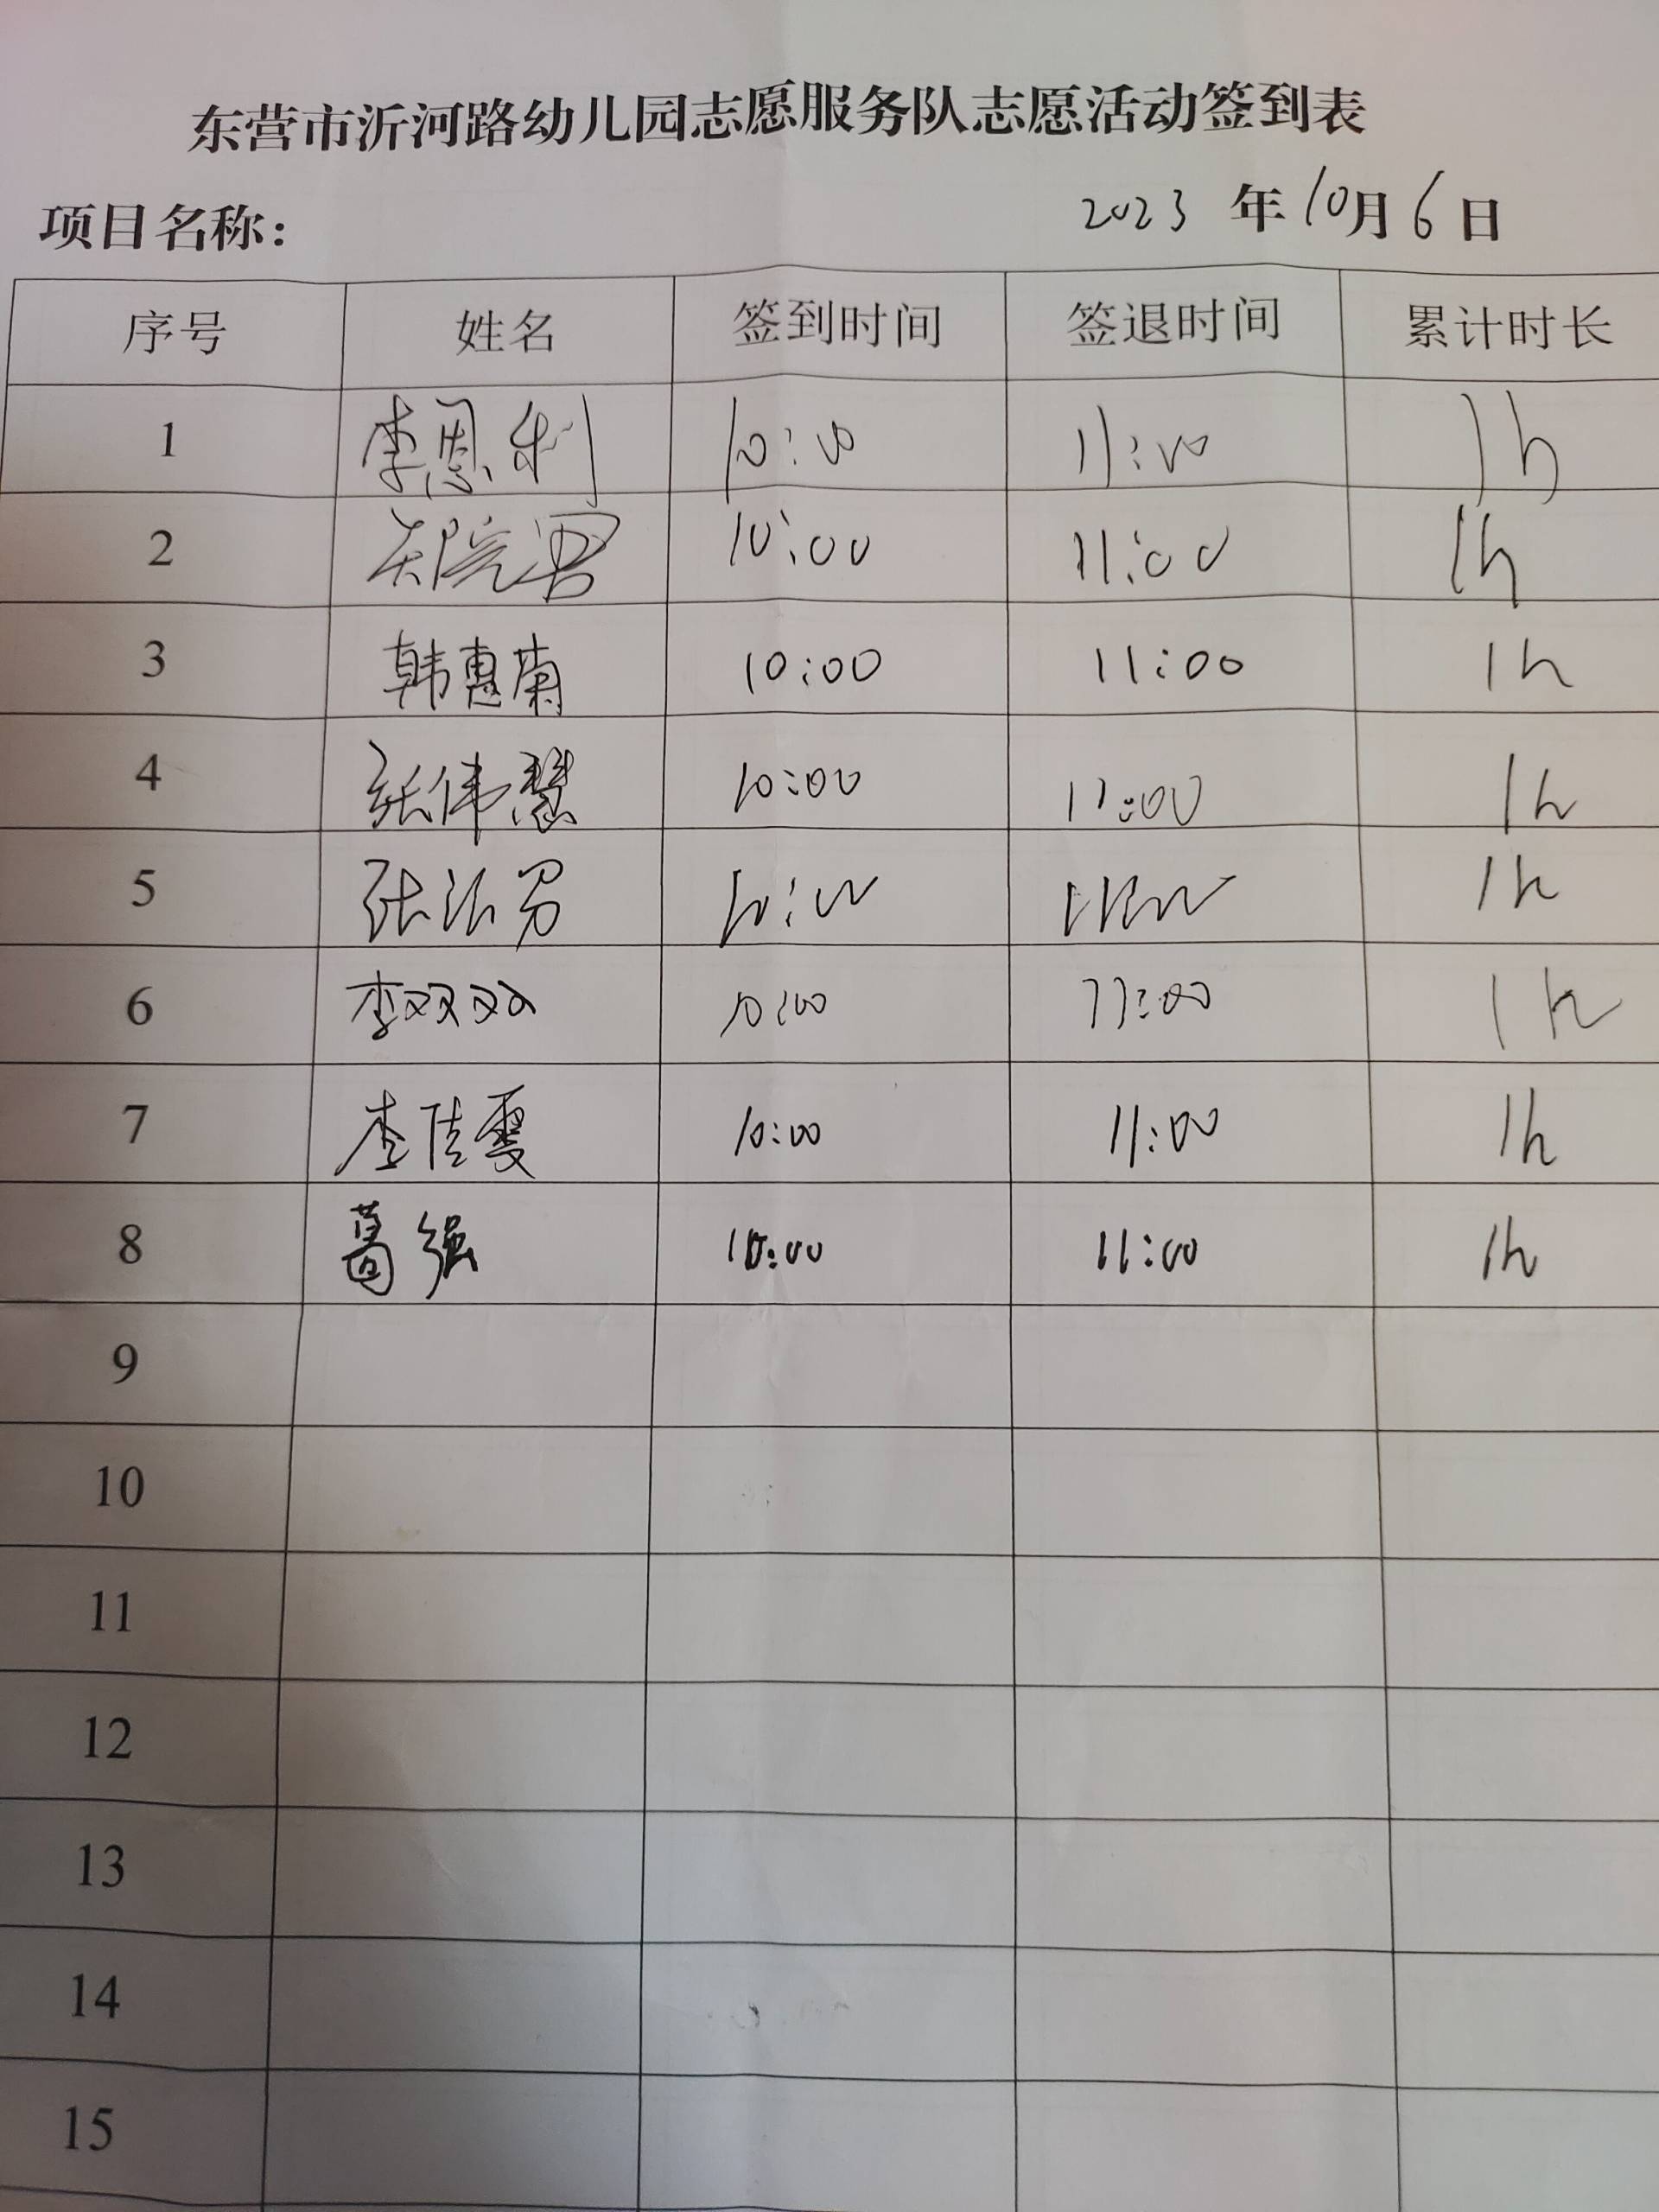 东营市沂河路幼儿园志愿服务队志愿活动签到表
项目名称: 2023 年 10 月 6 日
序号 姓名 签到时间 签退时间 累计时长
1 李恩利 10:00 11:00 1h
2 10:00 11:00 1h
3 韩惠菊 10:00 11:00 1h
4 张伟慧 10:00 11:00 1h
5 10:00 11:00 1h
6 李双双 10:00 11:00 1h
7 李佳雯 10:00 11:00 1h
8 葛强 10:00 11:00 1h
9
10
11
12
13
14
15